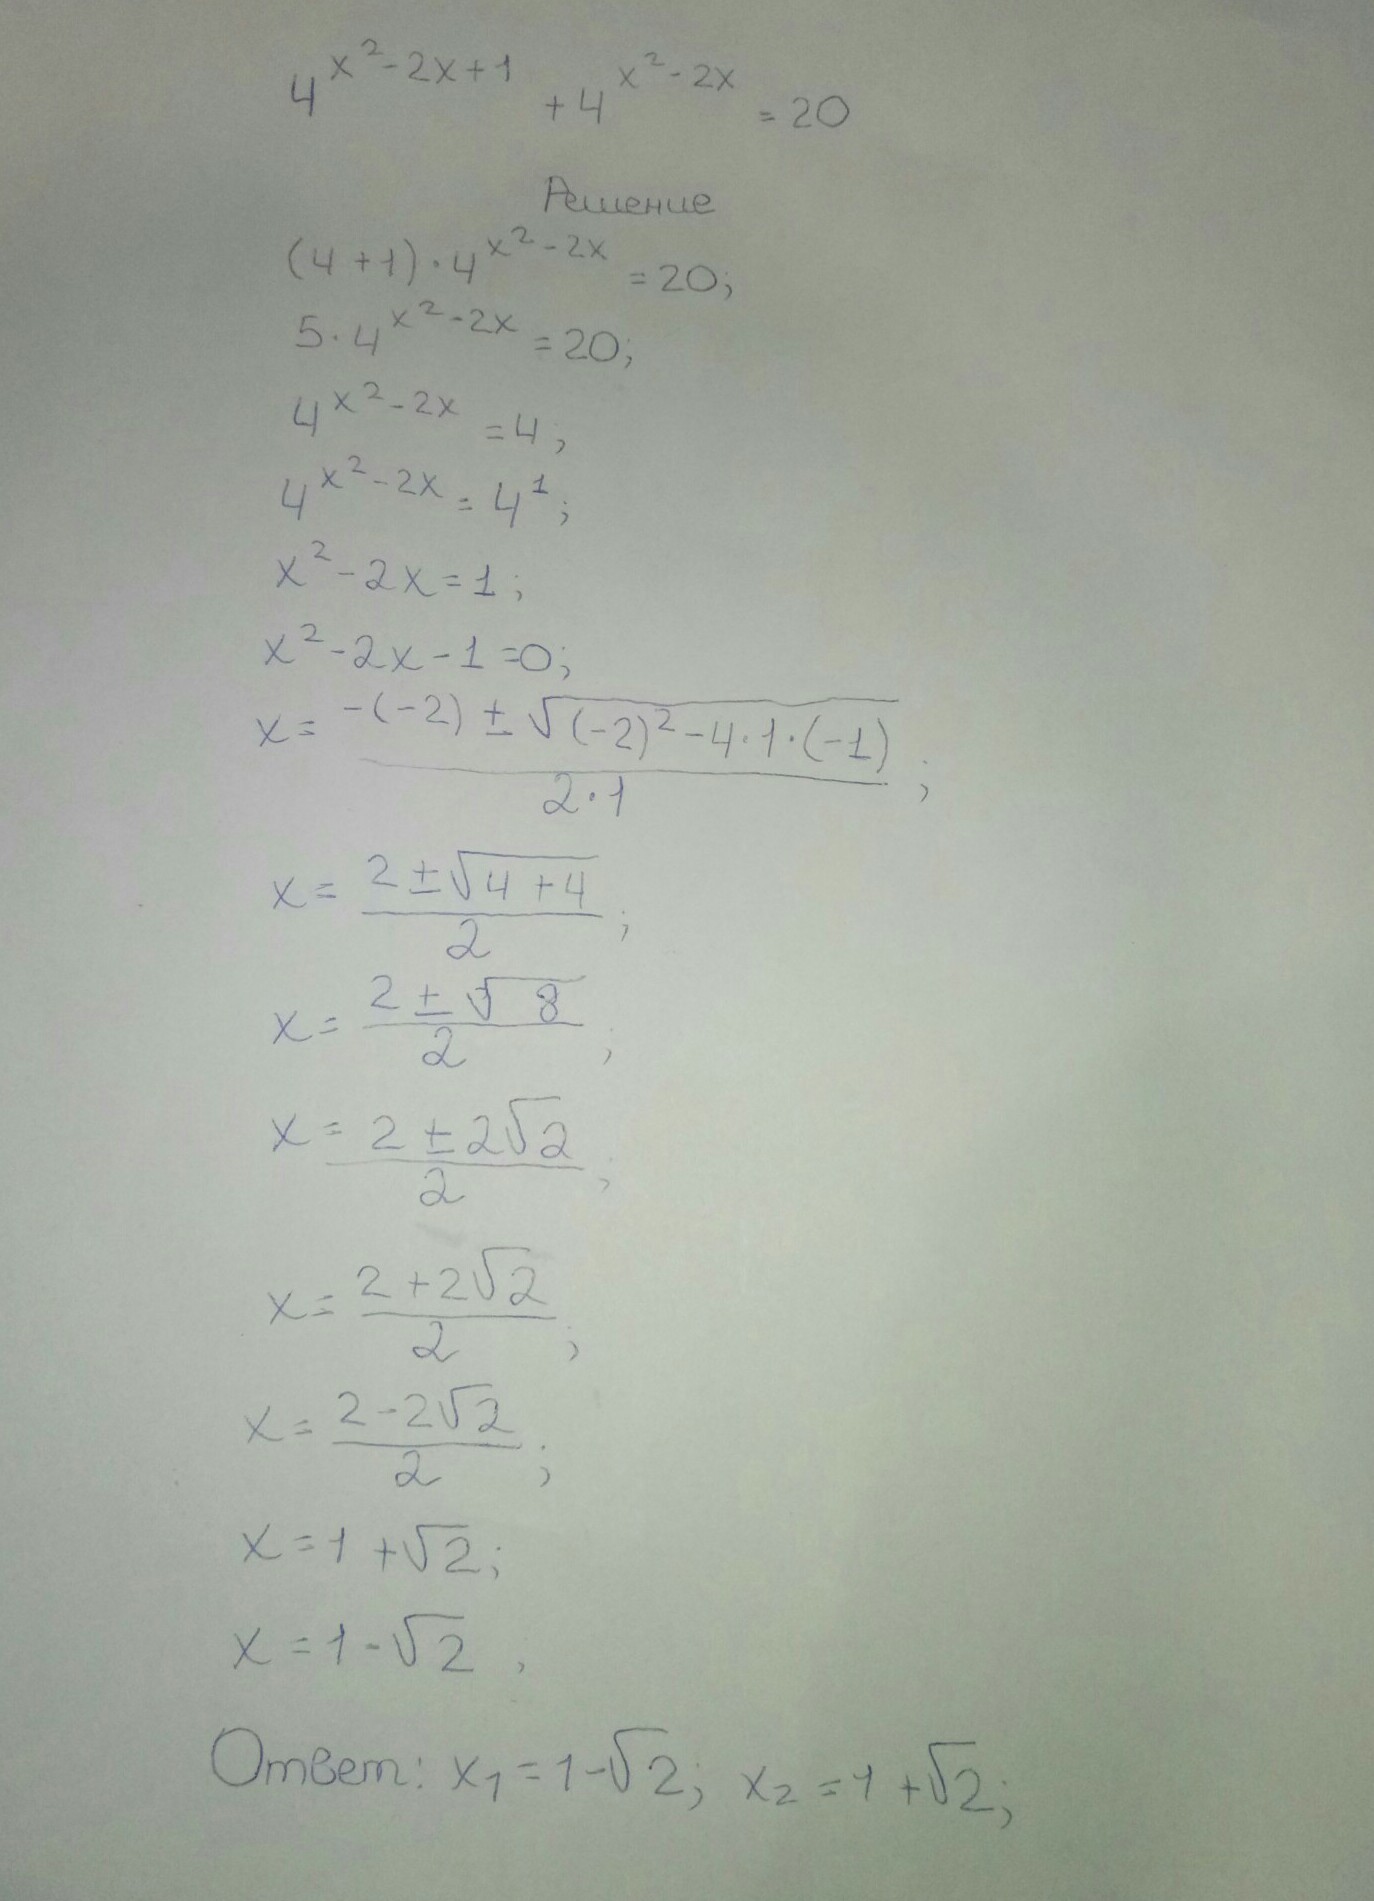 4^(x²-2x+1) + 4^(x²-2x) = 20
Решение
(4+1)·4^(x²-2x) = 20;
5·4^(x²-2x) = 20;
4^(x²-2x) = 4;
4^(x²-2x) = 4¹;
x²-2x=1;
x²-2x-1=0;
x= (-(-2) ± √((-2)²-4·1·(-1))) / (2·1);
x= (2±√(4+4)) / 2;
x= (2±√8) / 2;
x= (2±2√2) / 2;
x= (2+2√2) / 2;
x= (2-2√2) / 2;
x=1+√2;
x=1-√2,
Ответ: x₁=1-√2; x₂=1+√2;